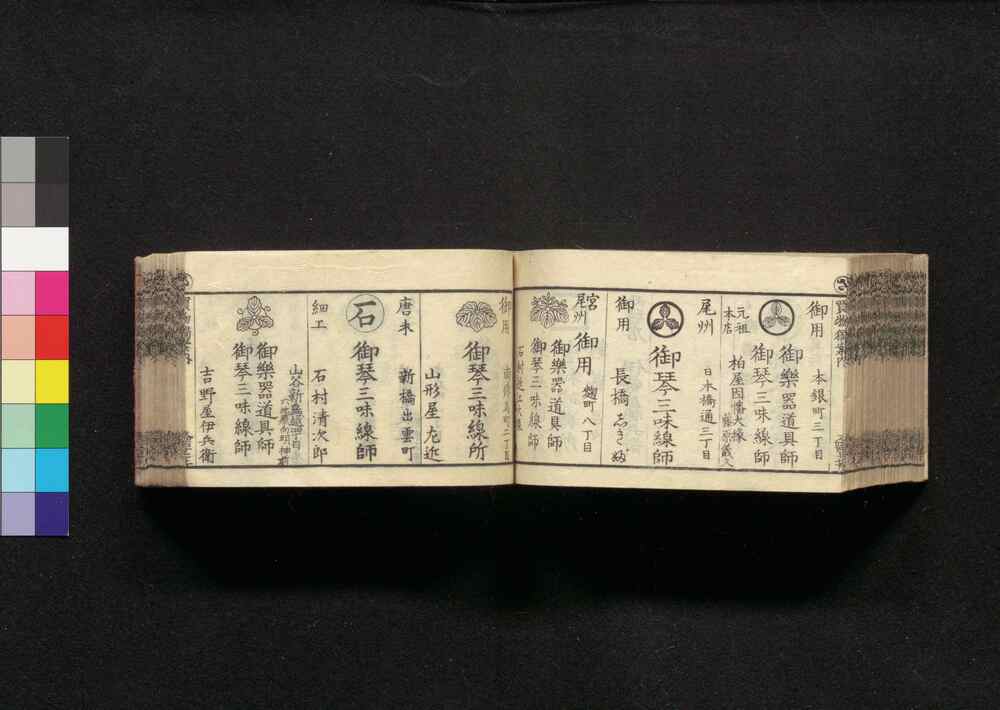 御用
本銀町三丁目
御樂器道具師
御琴三味線師
元祖
本店
柏屋因幡大掾
藤原
尾州
日本橋通三丁目
御琴三味線師
御用
長橋
宮
尾州
御用
麹町八丁目
御樂器道具師
御琴三味線師
御用
御琴三味線所
山形屋左近
唐木
新橋出雲町
石
御琴三味線師
細工
石村清次郎
山谷新鳥越四丁目
御樂器道具師
御琴三味線師
吉野屋伊兵衛